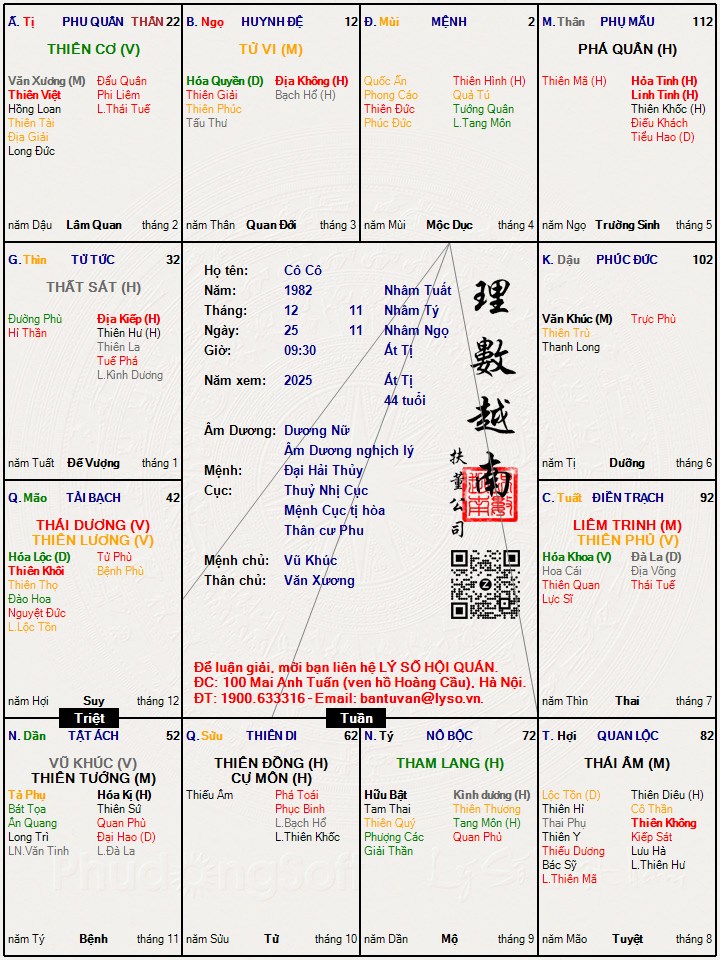 Ấ. Tị PHU QUÂN THÂN 22
THIÊN CƠ (V)
Văn Xương (M) Đẩu Quân
Thiên Việt Phi Liêm
Hồng Loan L.Thái Tuế
Thiên Tài
Địa Giải
Long Đức
năm Dậu Lâm Quan tháng 2
B. Ngọ HUYNH ĐỆ 12
TỬ VI (M)
Hóa Quyền (D) Địa Không (H)
Thiên Giải Bạch Hổ (H)
Thiên Phúc
Tấu Thư
năm Thân Quan Đới tháng 3
Đ. Mùi MỆNH 2
Quốc Ấn Thiên Hình (H)
Phong Cáo Quả Tú
Thiên Đức Tướng Quân
Phúc Đức L.Tang Môn
năm Mùi Mộc Dục tháng 4
M. Thân PHỤ MẪU 112
PHÁ QUÂN (H)
Thiên Mã (H) Hỏa Tinh (H)
Linh Tinh (H)
Thiên Khốc (H)
Điếu Khách
Tiểu Hao (D)
năm Ngọ Trường Sinh tháng 5
G. Thìn TỬ TỨC 32
THẤT SÁT (H)
Đường Phù Địa Kiếp (H)
Hỉ Thần Thiên Hư (H)
Thiên La
Tuế Phá
L.Kình Dương
năm Tuất Đế Vượng tháng 1
Họ tên: Cô Cô
Năm: 1982 Nhâm Tuất
Tháng: 12 11 Nhâm Tý
Ngày: 25 11 Nhâm Ngọ
Giờ: 09:30 Ất Tị
Năm xem: 2025 Ất Tị
44 tuổi
Âm Dương: Dương Nữ
Âm Dương nghịch lý
Mệnh: Đại Hải Thủy
Cục: Thuỷ Nhị Cục
Mệnh Cục tị hòa
Thân cư Phu
Mệnh chủ: Vũ Khúc
Thân chủ: Văn Xương
理數越南
扶董公司
Để luận giải, mời bạn liên hệ LÝ SỐ HỘI QUÁN.
ĐC: 100 Mai Anh Tuấn (ven hồ Hoàng Cầu), Hà Nội.
ĐT: 1900.633316 - Email: bantuvan@lyso.vn.
K. Dậu PHÚC ĐỨC 102
Văn Khúc (M) Trực Phù
Thiên Trù
Thanh Long
năm Tị Dưỡng tháng 6
Q. Mão TÀI BẠCH 42
THÁI DƯƠNG (V)
THIÊN LƯƠNG (V)
Hóa Lộc (D) Tử Phù
Thiên Khôi Bệnh Phù
Thiên Thọ
Đào Hoa
Nguyệt Đức
L.Lộc Tồn
năm Hợi Suy tháng 12
C. Tuất ĐIỀN TRẠCH 92
LIÊM TRINH (M)
THIÊN PHỦ (V)
Hóa Khoa (V) Đà La (D)
Hoa Cái Địa Võng
Thiên Quan Thái Tuế
Lực Sĩ
năm Thìn Thai tháng 7
Triệt
Tuần
N. Dần TẬT ÁCH 52
VŨ KHÚC (V)
THIÊN TƯỚNG (M)
Tả Phụ Hóa Kị (H)
Bát Tọa Thiên Sứ
Ân Quang Quan Phù
Long Trì Đại Hao (D)
LN.Văn Tinh L.Đà La
năm Tý Bệnh tháng 11
Q. Sửu THIÊN DI 62
THIÊN ĐỒNG (H)
CỰ MÔN (H)
Thiếu Âm Phá Toái
Phục Binh
L.Bạch Hổ
L.Thiên Khốc
năm Sửu Tử tháng 10
N. Tý NÔ BỘC 72
THAM LANG (H)
Hữu Bật Kình dương (H)
Tam Thai Thiên Thương
Thiên Quý Tang Môn (H)
Phượng Các Quan Phủ
Giải Thần
năm Dần Mộ tháng 9
T. Hợi QUAN LỘC 82
THÁI ÂM (M)
Lộc Tồn (D) Thiên Diêu (H)
Thiên Hỉ Cô Thần
Thai Phụ Thiên Không
Thiên Y Kiếp Sát
Thiếu Dương Lưu Hà
Bác Sỹ L.Thiên Hư
L.Thiên Mã
năm Mão Tuyệt tháng 8